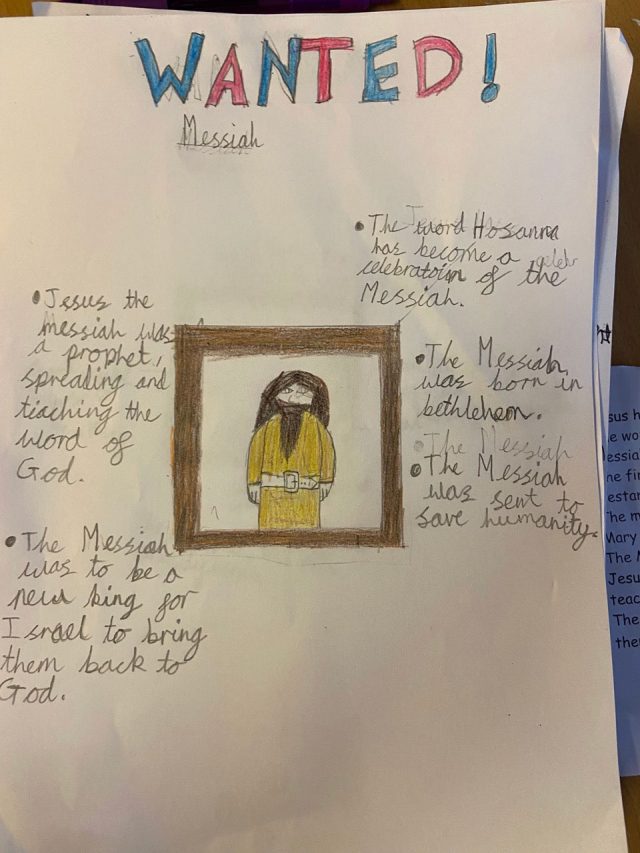 WANTED!
Messiah
• The word Hosanna
has become a
celebratoin of the
Messiah.
• Jesus the
messiah was
a prophet,
spreading and
teaching the
word of
God.
• The Messiah
was born in
bethlehem.
The Messiah
• The Messiah
was sent to
save humanity.
• The Messiah
was to be a
new king for
Israel to bring
them back to
God.
sus h
Mary
The M
Jesu
teac
The
the